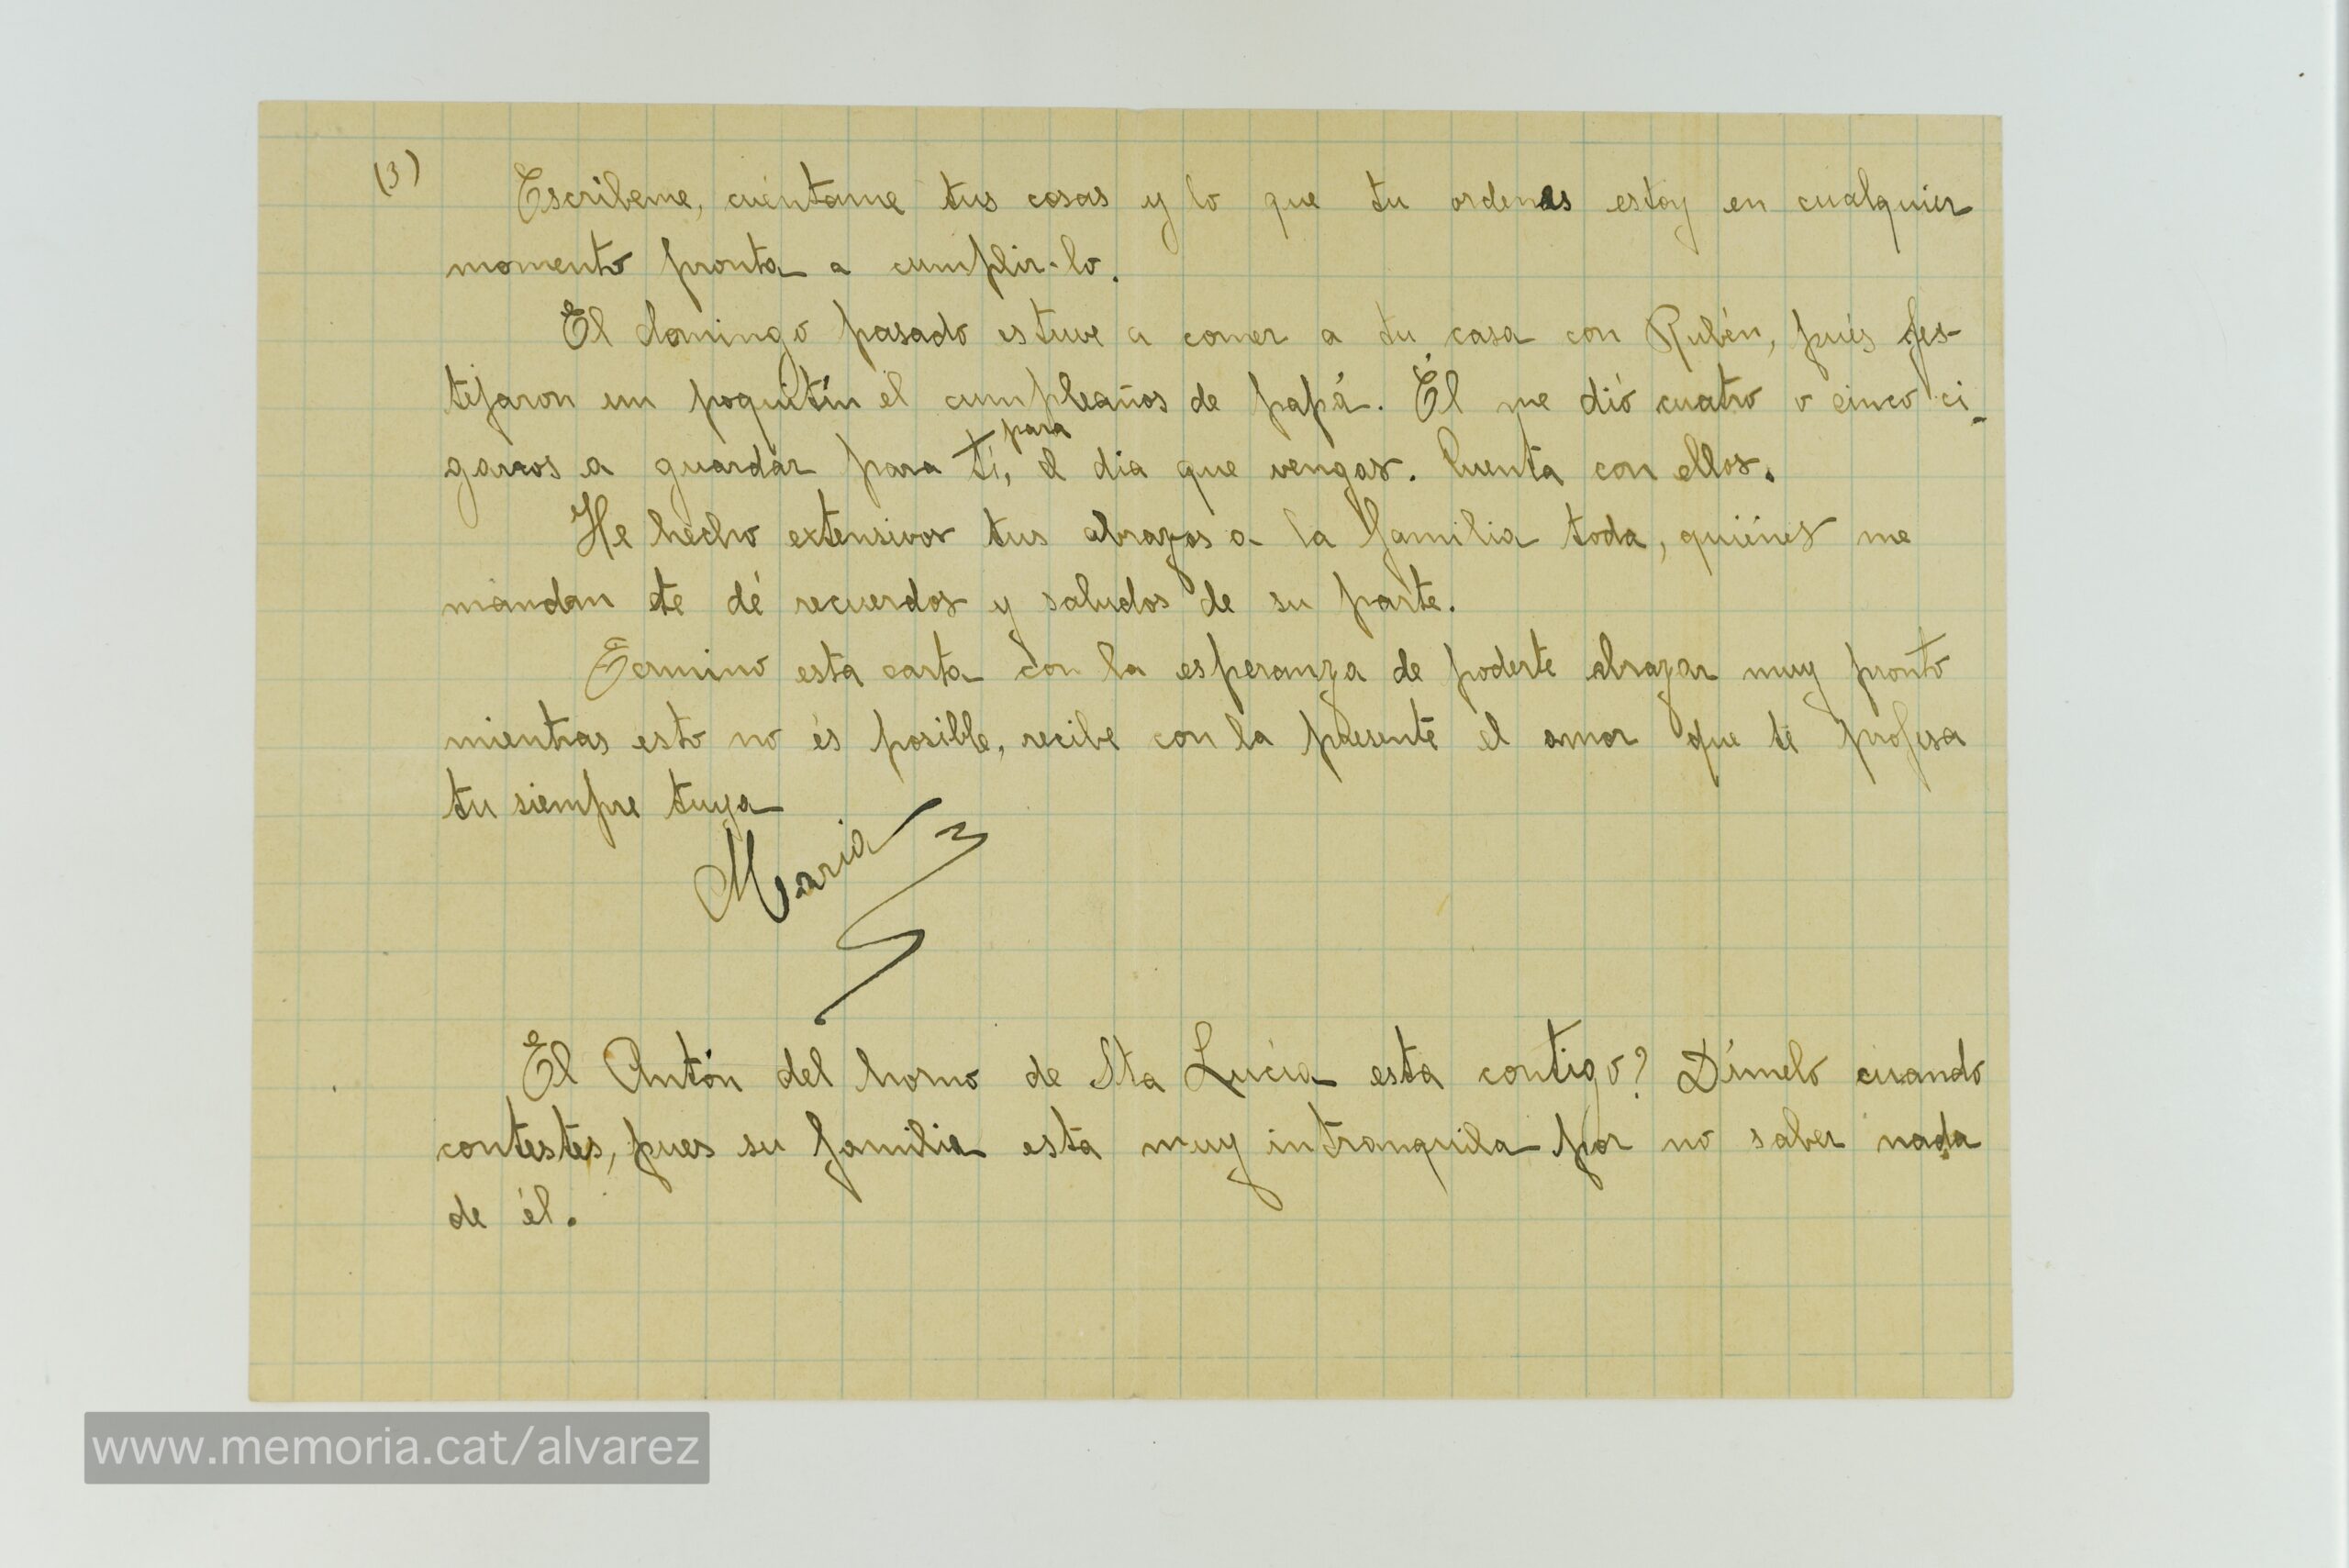 (3) Escribeme, cuéntame tus cosas y lo que tu ordenas estoy en cualquier
momento pronta a cumplir-lo.
El domingo pasado estuve a comer a tu casa con Rubén, pués fes-
tejaron un poquitín el cumpleaños de papá. Él me dió cuatro o cinco ci-
garros a guardar para tí, para el dia que vengas. Cuenta con ellos.
He hecho extensivos tus abrazos a la familia toda, quiénes me
mandan te dé recuerdos y saludos de su parte.
Termino esta carta con la esperanza de poderte abrazar muy pronto
mientras esto no és posible, recibe con la presente el amor que te profesa
tu siempre tuya
Maria
El Antón del horno de Sta Lucía esta contigo? Dímelo cuando
contestes, pues su familia esta muy intranquila por no saber nada
de él.
www.memoria.cat/alvarez